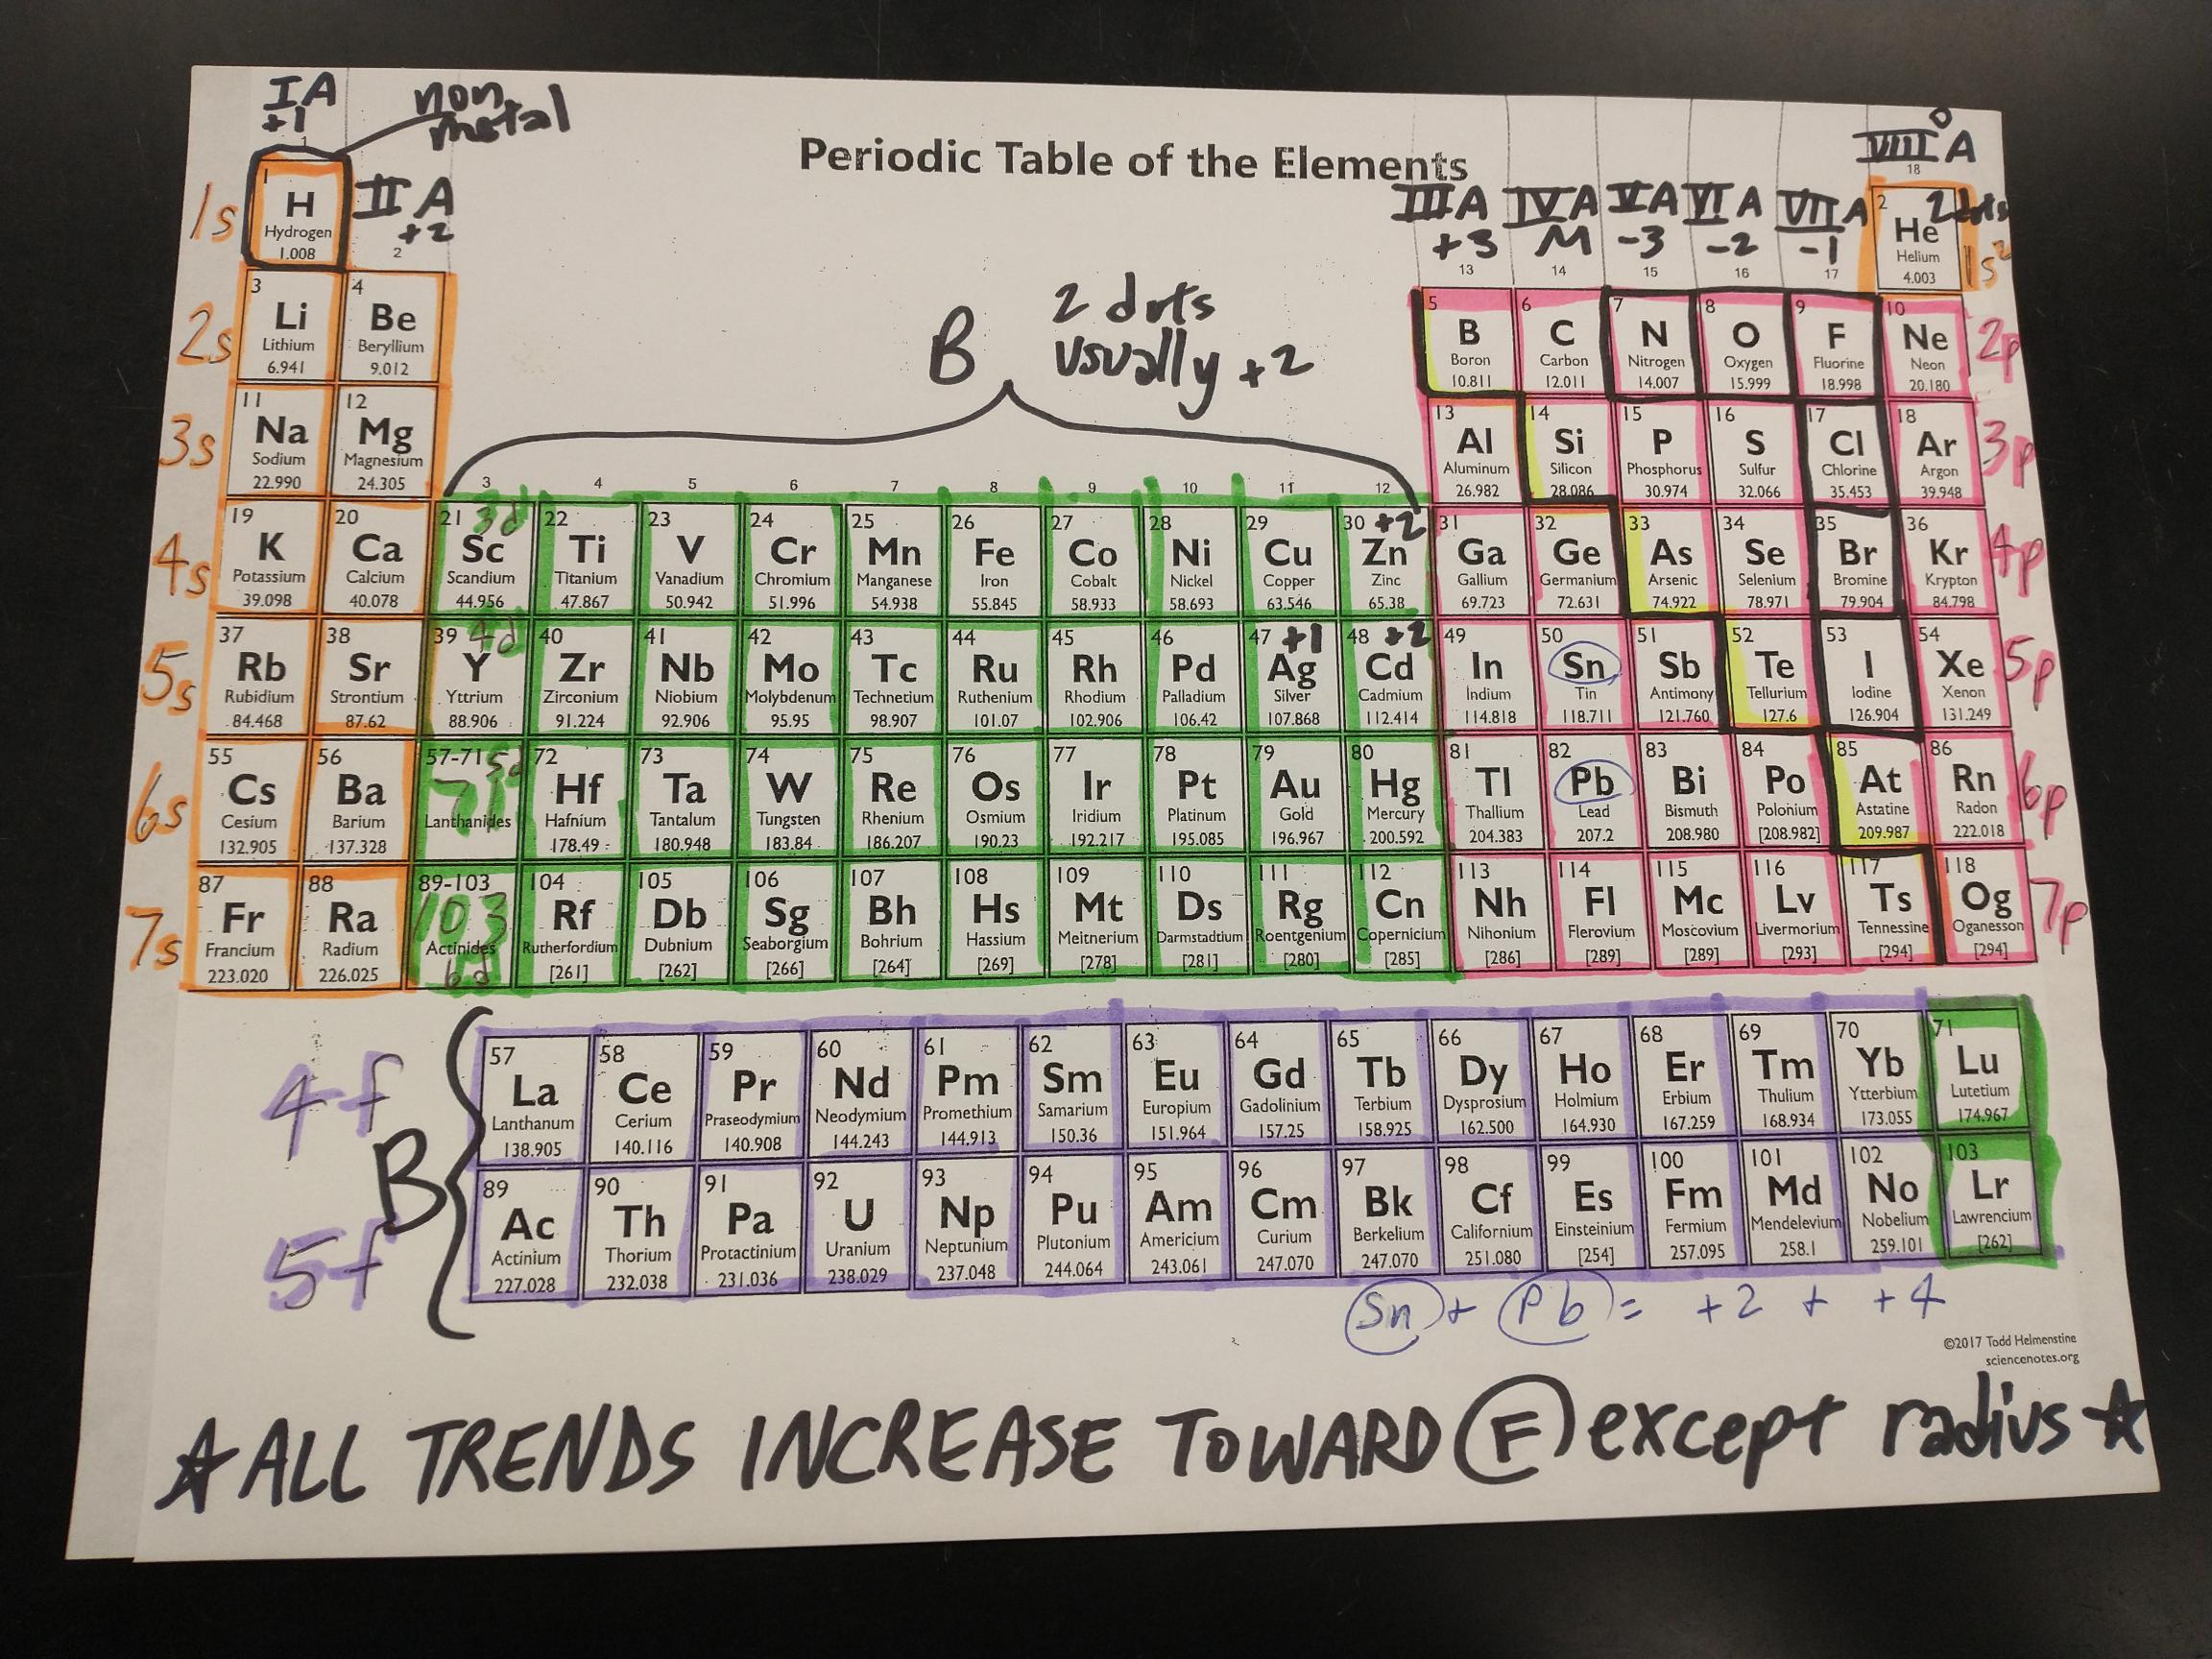 IA
+1
non
metal
Periodic Table of the Elements
0
VIIIA
1
18
1s
1
H
Hydrogen
1.008
IIA
+2
2
IIIA IVA VA VIA VIIA
+3 M -3 -2 -1
13 14 15 16 17
2 dots
2
He
Helium
4.003
1s²
2s
3 4
Li Be
Lithium Beryllium
6.941 9.012
B
2 dots
usually +2
5 6 7 8 9 10
B C N O F Ne
Boron Carbon Nitrogen Oxygen Fluorine Neon
10.811 12.011 14.007 15.999 18.998 20.180
2p
3s
11 12
Na Mg
Sodium Magnesium
22.990 24.305
13 14 15 16 17 18
Al Si P S Cl Ar
Aluminum Silicon Phosphorus Sulfur Chlorine Argon
26.982 28.086 30.974 32.066 35.453 39.948
3p
3 4 5 6 7 8 9 10 11 12
4s
19 20 21 3d 22 23 24 25 26 27 28 29 30 +2 31 32 33 34 35 36
K Ca Sc Ti V Cr Mn Fe Co Ni Cu Zn Ga Ge As Se Br Kr
Potassium Calcium Scandium Titanium Vanadium Chromium Manganese Iron Cobalt Nickel Copper Zinc Gallium Germanium Arsenic Selenium Bromine Krypton
39.098 40.078 44.956 47.867 50.942 51.996 54.938 55.845 58.933 58.693 63.546 65.38 69.723 72.631 74.922 78.971 79.904 84.798
4p
5s
37 38 39 4d 40 41 42 43 44 45 46 47 +1 48 +2 49 50 51 52 53 54
Rb Sr Y Zr Nb Mo Tc Ru Rh Pd Ag Cd In Sn Sb Te I Xe
Rubidium Strontium Yttrium Zirconium Niobium Molybdenum Technetium Ruthenium Rhodium Palladium Silver Cadmium Indium Tin Antimony Tellurium Iodine Xenon
84.468 87.62 88.906 91.224 92.906 95.95 98.907 101.07 102.906 106.42 107.868 112.414 114.818 118.711 121.760 127.6 126.904 131.249
5p
6s
55 56 57-71 5d 72 73 74 75 76 77 78 79 80 81 82 83 84 85 86
Cs Ba 71 Hf Ta W Re Os Ir Pt Au Hg Tl Pb Bi Po At Rn
Cesium Barium Lanthanides Hafnium Tantalum Tungsten Rhenium Osmium Iridium Platinum Gold Mercury Thallium Lead Bismuth Polonium Astatine Radon
132.905 137.328 178.49 180.948 183.84 186.207 190.23 192.217 195.085 196.967 200.592 204.383 207.2 208.980 [208.982] 209.987 222.018
6p
7s
87 88 89-103 104 105 106 107 108 109 110 111 112 113 114 115 116 117 118
Fr Ra 103 Rf Db Sg Bh Hs Mt Ds Rg Cn Nh Fl Mc Lv Ts Og
Francium Radium Actinides Rutherfordium Dubnium Seaborgium Bohrium Hassium Meitnerium Darmstadtium Roentgenium Copernicium Nihonium Flerovium Moscovium Livermorium Tennessine Oganesson
223.020 226.025 6d [261] [262] [266] [264] [269] [278] [281] [280] [285] [286] [289] [289] [293] [294] [294]
7p
4f
57 58 59 60 61 62 63 64 65 66 67 68 69 70 71
La Ce Pr Nd Pm Sm Eu Gd Tb Dy Ho Er Tm Yb Lu
Lanthanum Cerium Praseodymium Neodymium Promethium Samarium Europium Gadolinium Terbium Dysprosium Holmium Erbium Thulium Ytterbium Lutetium
138.905 140.116 140.908 144.243 144.913 150.36 151.964 157.25 158.925 162.500 164.930 167.259 168.934 173.055 174.967
B
5f
89 90 91 92 93 94 95 96 97 98 99 100 101 102 103
Ac Th Pa U Np Pu Am Cm Bk Cf Es Fm Md No Lr
Actinium Thorium Protactinium Uranium Neptunium Plutonium Americium Curium Berkelium Californium Einsteinium Fermium Mendelevium Nobelium Lawrencium
227.028 232.038 231.036 238.029 237.048 244.064 243.061 247.070 247.070 251.080 [254] 257.095 258.1 259.101 [262]
Sn + Pb = +2 + +4
©2017 Todd Helmenstine
sciencenotes.org
☆ ALL TRENDS INCREASE TOWARD F except radius ☆